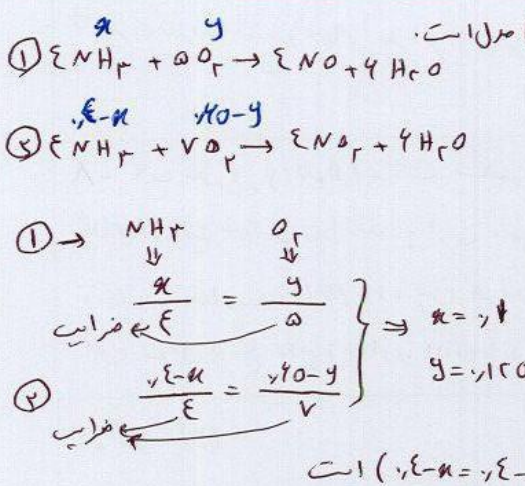 مدل است.
x y
① ۴NH۳ + ۵O۲ → ۴NO + ۶H۲O
۰,۴-x ۰,۶۵-y
② ۴NH۳ + ۷O۲ → ۴NO۲ + ۶H۲O
① → NH۳ O۲
⇓ ⇓
x/۴ = y/۵
ضرایب
② ۰,۴-x/۴ = ۰,۶۵-y/۷
ضرایب
} ⇒ x = ۰,۱
y = ۰,۱۲۵
۰,۴-x = ۰,۴-) است